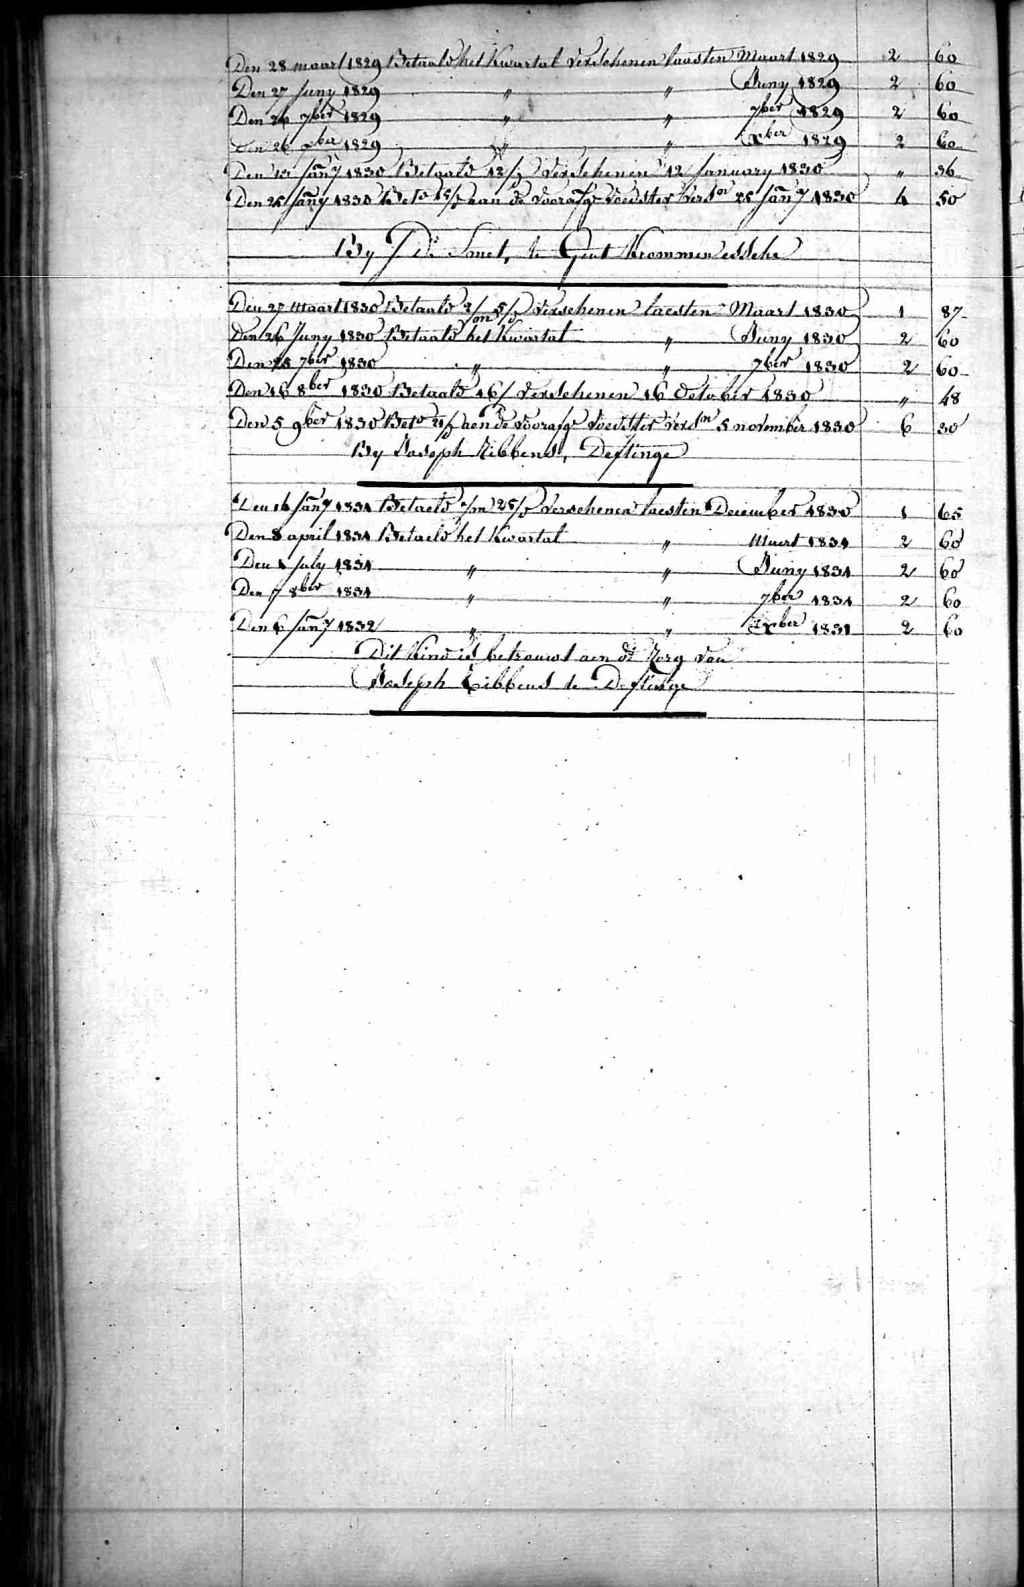 Den 28 maart 1829 Betaald het Kwartal verschenen laasten Maart 1829 2 60
Den 27 Juny 1829 " " Juny 1829 2 60
Den 26 7ber 1829 " " 7ber 1829 2 60
Den 26 xber 1829 " " Xber 1829 2 60
Den 12 Jany 1830 Betaald 12/ verschenen 12 January 1830 " 36
Den 25 Jany 1830 Bet° aan de voorafge voedster vers en 25 Jany 1830 4 50
By De Smet, te Gent Krommen esschе
Den 27 Maart 1830 Betaald verschenen laesten Maart 1830 1 87
Den 26 Juny 1830 Betaald het Kwartal " Juny 1830 2 60
Den 28 7ber 1830 " " 7ber 1830 2 60
Den 16 8ber 1830 Betaald 16/ verschenen 16 October 1830 " 48
Den 5 9ber 1830 Bet° aen de voorafge voedster vers en 5 november 1830 6 30
By Joseph Ribbens, Deftinge
Den 16 Jany 1831 Betaeld verschenen laesten December 1830 1 65
Den 8 april 1831 Betaeld het Kwartal " Maert 1831 2 60
Den 1 July 1831 " " Juny 1831 2 60
Den 7 8ber 1831 " " 7ber 1831 2 60
Den 6 Jany 1832 " " Xber 1831 2 60
Dit Kind is betrouwt aen de Zorg van
Joseph Ribbens te Deftinge